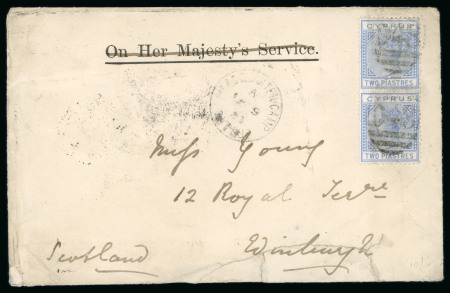 On Her Majesty's Service.
CYPRUS
TWO PIASTRES
CYPRUS
TWO PIASTRES
Miss Young
12 Royal Terre
Edinburgh
Scotland